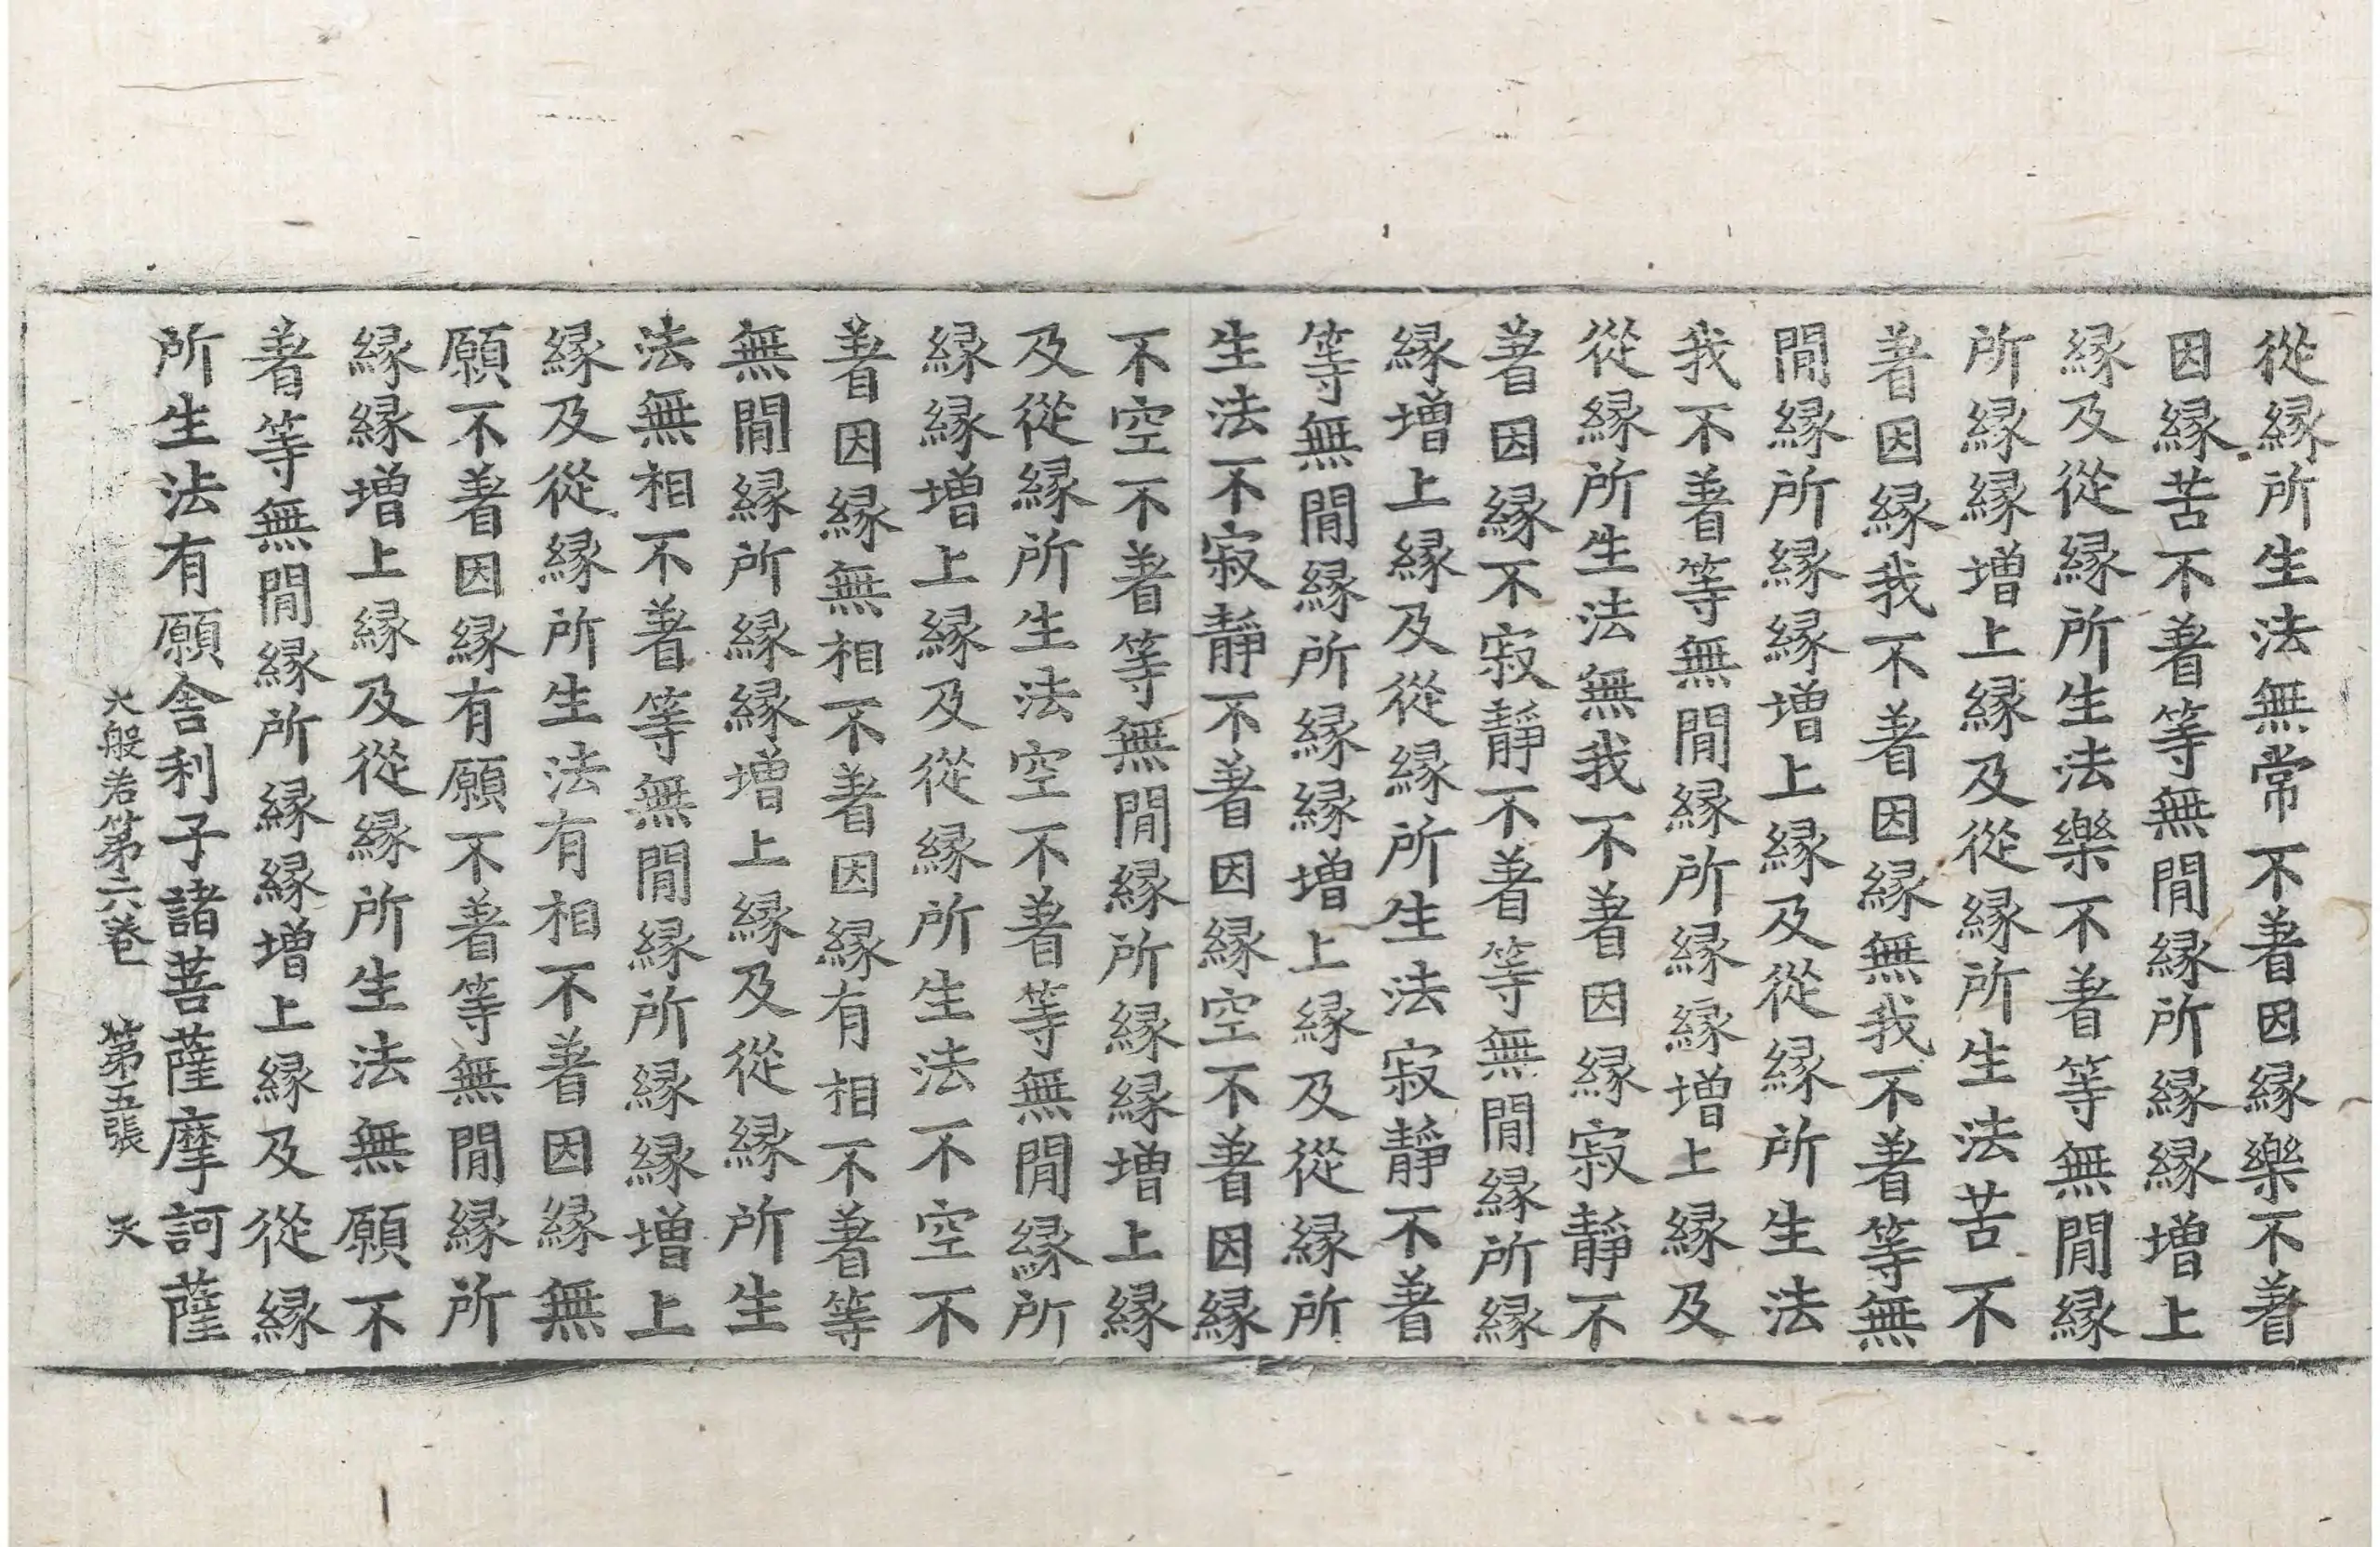 從緣所生法無常不著因緣樂不著
因緣苦不著等無閒緣所緣緣增上
緣及從緣所生法樂不著等無閒緣
所緣緣增上緣及從緣所生法苦不
著因緣我不著因緣無我不著等無
閒緣所緣緣增上緣及從緣所生法
我不著等無閒緣所緣緣增上緣及
從緣所生法無我不著因緣寂靜不
著因緣不寂靜不著等無閒緣所緣
緣增上緣及從緣所生法寂靜不著
等無閒緣所緣緣增上緣及從緣所
生法不寂靜不著因緣空不著因緣
不空不著等無閒緣所緣緣增上緣
及從緣所生法空不著等無閒緣所
緣緣增上緣及從緣所生法不空不
著因緣無相不著因緣有相不著等
無閒緣所緣緣增上緣及從緣所生
法無相不著等無閒緣所緣緣增上
緣及從緣所生法有相不著因緣無
願不著因緣有願不著等無閒緣所
緣緣增上緣及從緣所生法無願不
著等無閒緣所緣緣增上緣及從緣
所生法有願舍利子諸菩薩摩訶薩
大般若第六卷 第五張 天